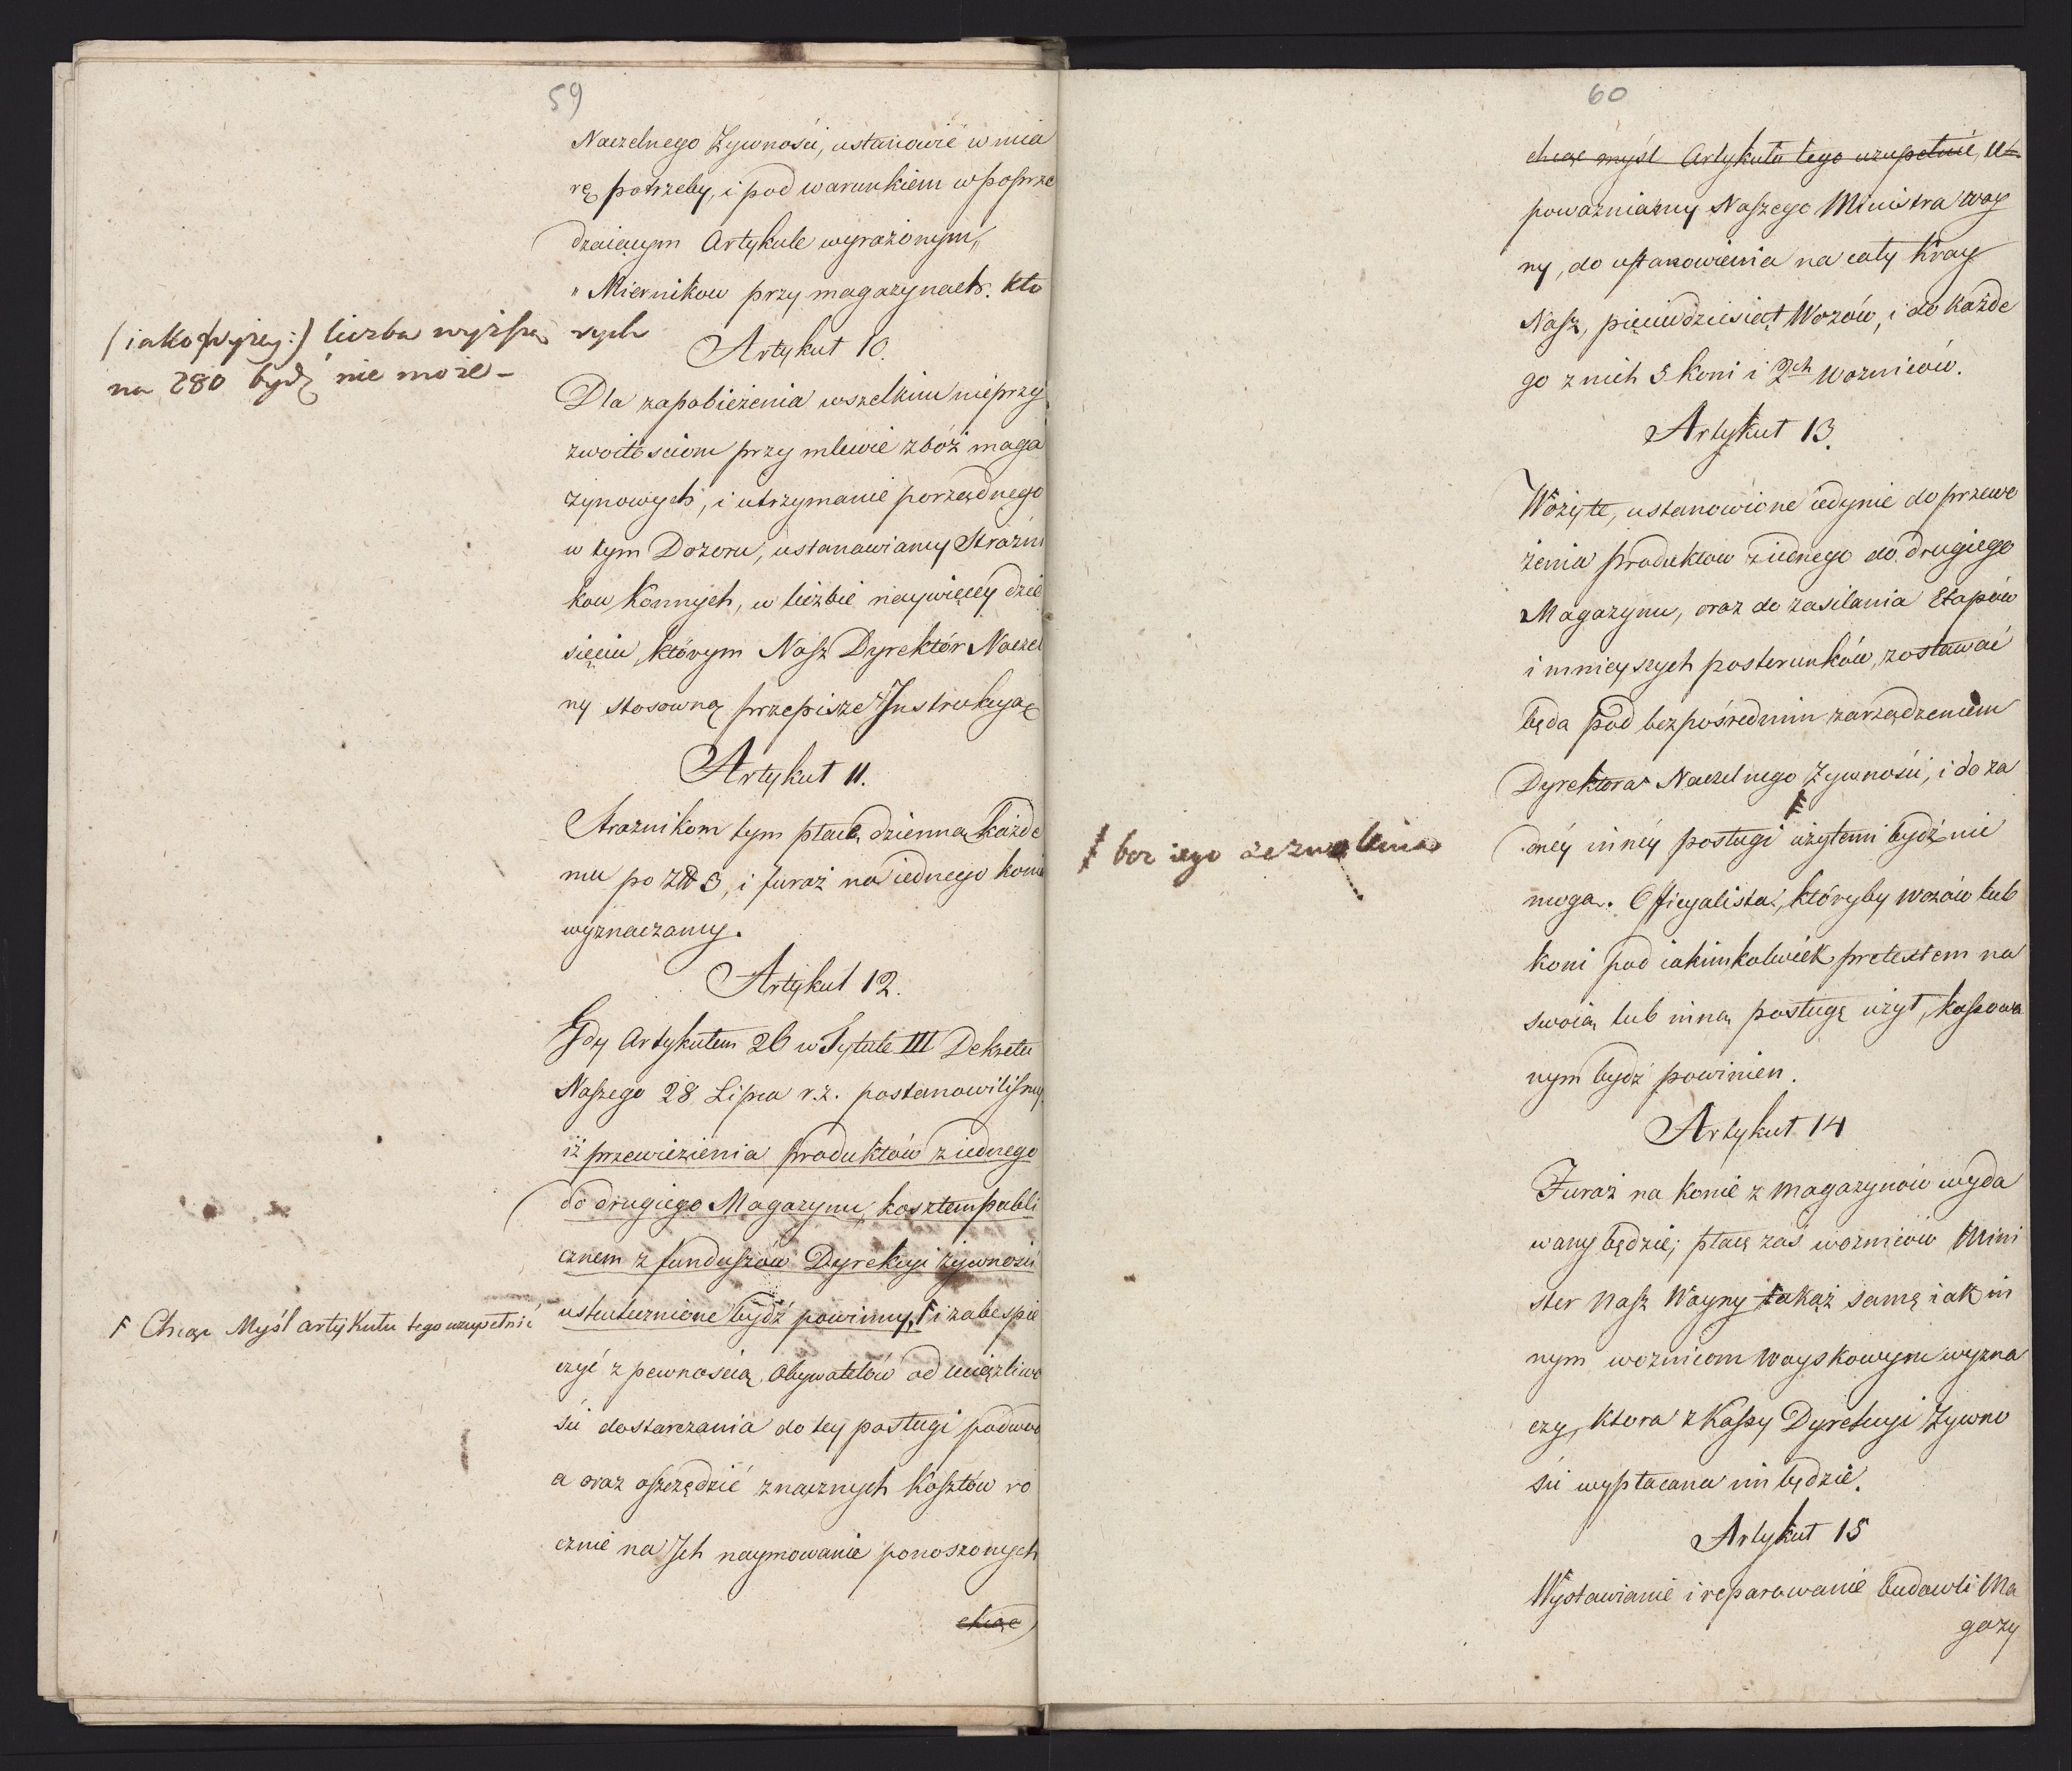 59
Naczelnego Zywności, ustanowić w mia
rę potrzeby, i pod warunkiem w poprze
dzaiącym Artykule wyrażonym,,
" Mierników przy magazynach. któ
rych
(iako wyżey:) liczba wyższą
na 280 bydź nie może -
Artykuł 10.
Dla zapobieżenia wszelkim nieprzy
zwoitościom przy mlewie zbóż maga
zynowych, i utrzymanie porządnego
w tym Dozoru, ustanawiamy Strażni
kow Konnych, w liczbie naywięcey dzie
sięciu, którym Nasz Dyrektór Naczel
ny stosowną przepisze Instrukcyą
Artykuł 11.
Strażnikom tym płacę dzienną każde
mu po Złł 3, i furaż na iednego konia
wyznaczamy.
Artykuł 12.
Gdy Artykułem 26 w Tytule III Dekretu
Naszego 28 Lipca r.z. postanowiliśmy,
iż przewiezienia produktów z iednego
do drugiego Magazynu, kosztem publi
cznem z funduszów Dyrekcyi żywności
uskutecznione bydź powinny, F i zabespie
F Chcąc Myśl artykułu tego uzupełnić
czyć z pewnością Obywatelów od uciążliwo
ści dostarczania do tey posługi podwod
a oraz oszczędzić znacznych Kosztów ro
cznie na Ich naymowanie ponoszonych
chcąc
60
chcąc myśl Artykułu tego uzupełnić, u
poważniamy Naszego Ministra Woy
ny, do ustanowienia na cały Kray
Nasz, pięciudziesiąt Wozów, i do każde
go z nich 3 koni i 2ch Woźniców.
Artykuł 13.
Wozy te, ustanowione iedynie do przewo
żenia produktow z iednego do drugiego
Magazynu, oraz do zasilania Etapów
i mnieyszych posterunków, zostawać
będą pod bezpośrednim zarządzeniem
Dyrektora Naczelnego Zywności, i do ża
dnéy innéy posługi F użytemi bydź nie
F bez iego zezwolenia
mogą. Officyalista, któryby wozów lub
koni pod iakimkolwiek pretextem na
swoią lub inną posługę użył, kassowa
nym bydź powinien.
Artykuł 14
Furaż na konie z magazynów wyda
wany będzie; płacę zaś woźniców Mini
ster Nasz Woyny takąż samą iak in
nym woźnicom Woyskowym wyzna
czy, która z Kassy Dyrekcyi Żywno
ści wypłacana im będzie.
Artykuł 15
Wystawianie i reparowanie budowli Ma
gazy